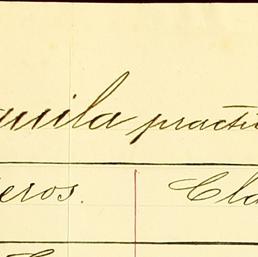 quila practi
eros. Cla